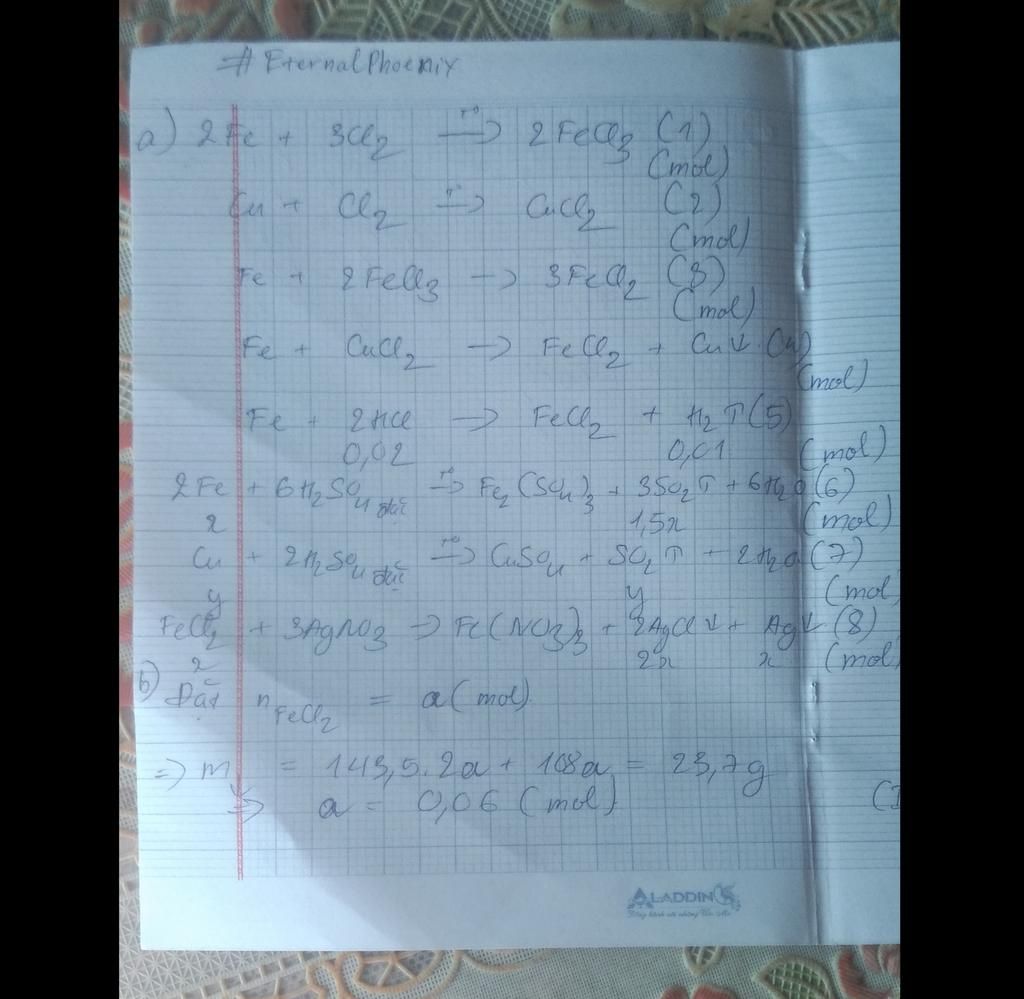 # EternalPhoenix
a) 2Fe + 3Cl₂ —t°→ 2FeCl₃ (1)
(mol)
Cu + Cl₂ —t°→ CuCl₂ (2)
(mol)
Fe + 2FeCl₃ → 3FeCl₂ (3)
(mol)
Fe + CuCl₂ → FeCl₂ + Cu↓ (4)
(mol)
Fe + 2HCl → FeCl₂ + H₂↑ (5)
0,02 0,01 (mol)
2Fe + 6H₂SO₄ đặc —t°→ Fe₂(SO₄)₃ + 3SO₂↑ + 6H₂O (6)
x 1,5x (mol)
Cu + 2H₂SO₄ đặc —t°→ CuSO₄ + SO₂↑ + 2H₂O (7)
y y (mol)
FeCl₂ + 3AgNO₃ → Fe(NO₃)₃ + 2AgCl↓ + Ag↓ (8)
x 2x x (mol)
b) Đặt n FeCl₂ = a (mol)
=> m = 143,5.2a + 108a = 23,7g
=> a = 0,06 (mol)
ALADDIN